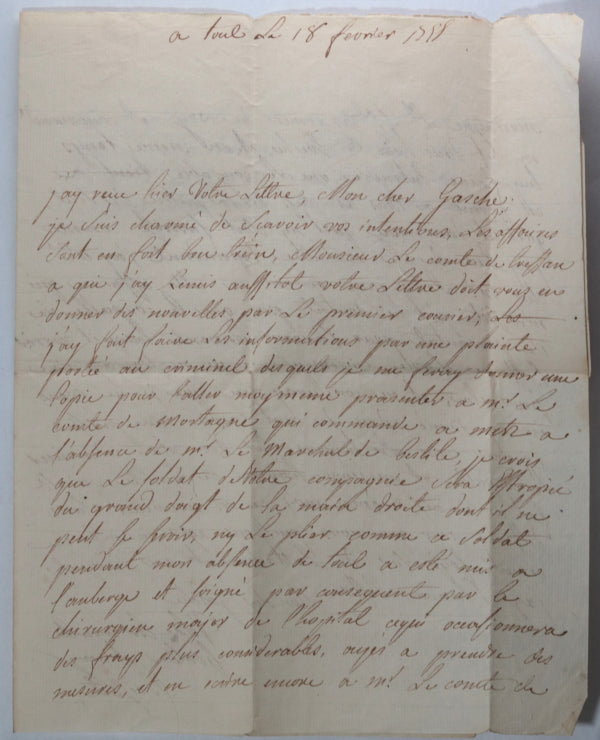 a toul Le 18 fevrier 1758
j'ay recu hier Votre Lettre, Mon cher Gasché.
je Suis charmé de Scavoir vos intentions, Les affaires
Sont en fort bon trein, Monsieur Le comte de Tressan
a qui j'ay remis aussitot votre Lettre doit vous en
donner des nouvelles par Le premier courier, Les
j'ay fait faire Les informations par une plainte
portée au criminel desquels je me feray donner une
Copie pour l'aller moymeme presenter a mr. Le
comte de Mortagne qui commande a metz a
l'absence de mr. Le Marechal de beslile, je crois
que Le Soldat d'Notre compagnie Sera Estropié
du grand doigt de la main droite dont il ne
peut Se Servir, ny Le plier comme ce Soldat
pendant mon absence de toul a esté mis a
l'auberge et Soigné par consequent par le
chirurgien major de l'hopital cecy occasionnera
des frays plus considerables, ayés a prendre des
mesures, et en ecrire encore a mr. Le comte de